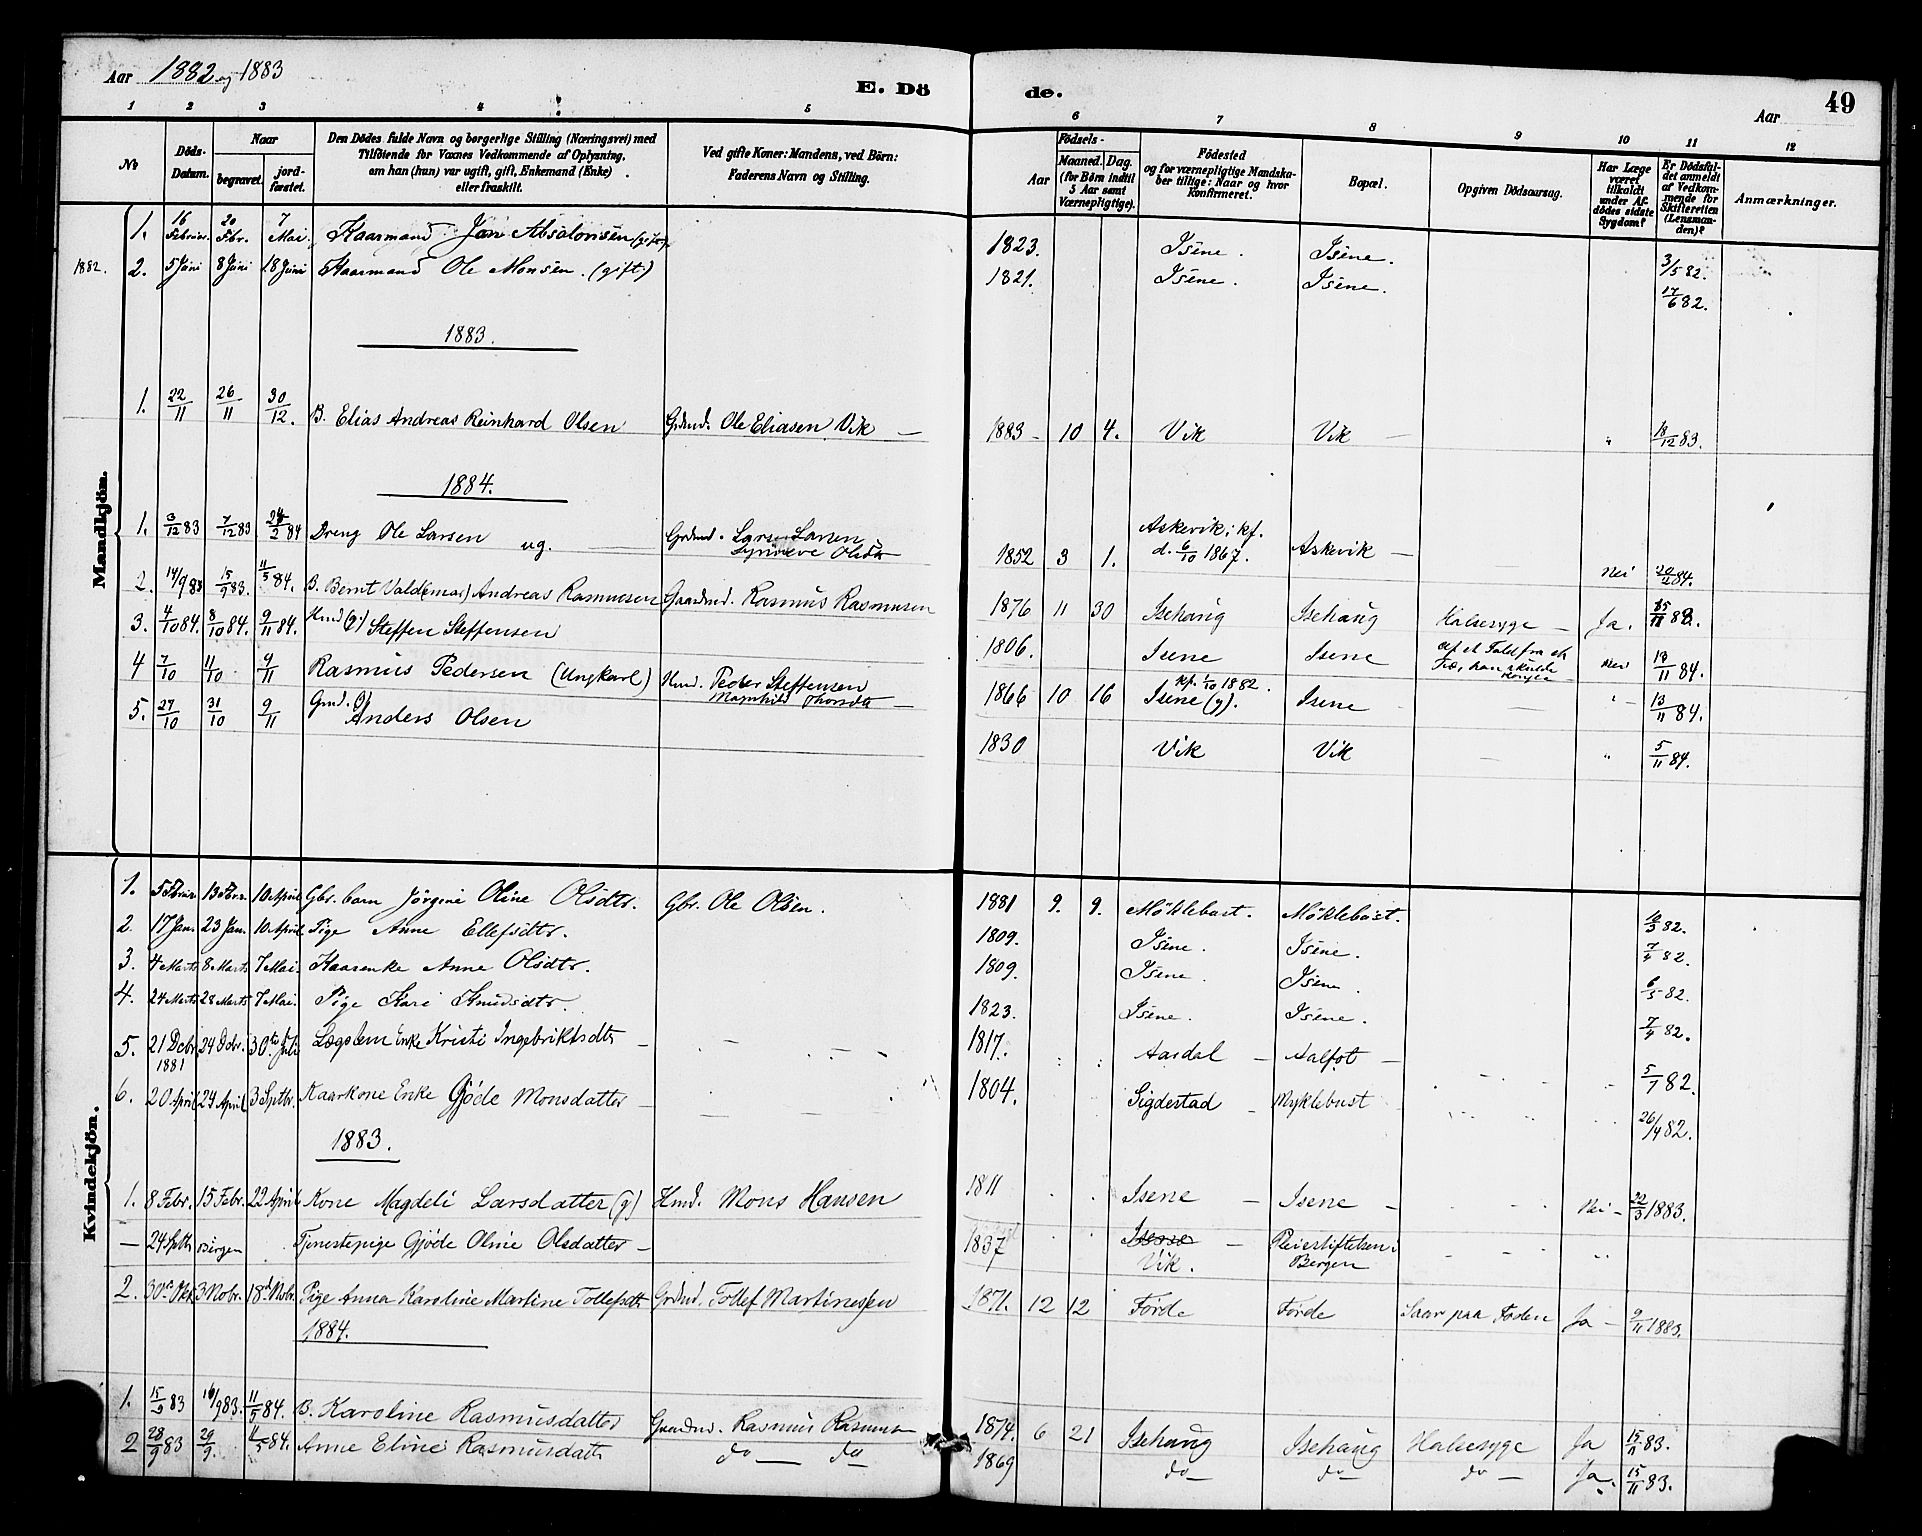 Aar 1882 og 1883
E. Dö
de.
Aar
49
1 2 3 4 5 6 7 8 9 10 11 12
No
Döds-Datum.
Naar
begravet.
jord-fæstet.
Den Dödes fulde Navn og borgerlige Stilling (Næringsvei) med
Tilföiende for Voxnes Vedkommende af Oplysning,
om han (hun) var ugift, gift, Enkemand (Enke)
eller fraskilt.
Ved gifte Koner: Mandens, ved Börn:
Faderens Navn og Stilling.
Födsels-
Aar
Maaned. Dag.
(for Börn indtil
5 Aar samt
Værnepligtige).
Födested
og for værnepligtige Mandska-
ber tillige: Naar og hvor
Konfirmeret.
Bopæl.
Opgiven Dödsaarsag.
Har Læge
været
tilkaldt
under Af-
dödes sidste
Sygdom?
Er Dödsfal-
det anmeldt
af Vedkom-
mende for
Skifteretten
(Lensman-
den)?
Anmærkninger.
Mandkjön.
1. 16 Februar. 20 Fbr. 7 Mai. Kaarmand Jon Absalonsen (gift) 1823. Isene. Isene. 3/5 82.
1882. 2. 5 Juni 8 Juni 18 Juni Kaarmand Ole Monsen. (gift) 1821. Isene. Isene. 17/6 82.
1883.
1. 22/11 26/11 30/12. B. Elias Andreas Reinhard Olsen Grdmd. Ole Eliasen Vik — 1883 - 10 4. Vik Vik — " 18/12 83.
1884.
1. 3/12 83 7/12 83 24/2 84 Dreng Ole Larsen ug. — Grdmd. Lars Larsen
Synneve Olsdtr 1852 3 1. Askevik; kf.
d. 6/10 1867. Askevik — Nei 20/2 84.
2. 14/9 83 15/9 83. 11/5 84. B. Bernt Vald(emar) Andreas Rasmussen Gaardmd. Rasmus Rasmusen 1876 11 30 Isehaug Isehaug Halsesyge — Ja. 15/11 83.
3. 4/10 84. 8/10 84. 9/11 84. Hmd (g) Steffen Steffensen 1806. Isene Isene af et Fald fra et
Træ, han skulde
Nei 13/11 84.
4 7/10 11/10 9/11 Rasmus Pedersen (Ungkarl) Hmd. Peder Steffensen
Magnhild Thorsdtr 1866 10 16 kf. 1/10 1882.
Isene (g). Isene — " 13/11 84.
5. 27/10 31/10 9/11 Gmd. g) Anders Olsen — 1830 Vik Vik — " 5/11 84.
Kvindekjön.
1. 5 Februar 13 Febr. 10 April Gbr. barn Jörgine Oline Olsdtr. Gbr. Ole Olsen. 1881 9. 9. Möklebust. Möklebust. 82.
2. 17 Jan. 23 Jan. 10 April. Pige Anne Ellefsdtr. 1809. Isene. Isene. 82.
3. 4 Marts 8 Marts 7 Mai. Kaarenke Anne Olsdtr. 1809. Isene. Isene. 6/5 82.
4. 24 Marts 28 Marts 7 Mai. Pige Kari Knudsdtr. 1823. Isene. Isene. 82.
5. 21 Dcbr. 1881 24 Dcbr. 30te Juli Lægslem Enke Kristi Ingebriktsdtr — 1817. Aardal — Aalfot — 5/1 82.
6. 20 April 24 April 3 Septbr. Kaarkone Enke Gjöde Monsdatter — 1804. Sigdestad — Myklebust 26/4 82.
1883.
1. 8 Febr. 15 Febr. 22 April Kone Magdeli Larsdatter (g) Hmd. Mons Hansen 1811 Isene — Isene — Nei — 22/3 1883.
— 24 Sptb. Bergen Tjenestepige Gjöde Oline Olsdatter — 1837 Isene —
Vik. Pleiestiftelsen i
Bergen
2. 30te Okt. 3 Nobr. 18de Nobr. Pige Anna Karoline Martine Tollefsdtr Grdmd. Tollef Martinessen 1871. 12 12 Förde Förde Saar paa Foden Ja — 9/11 1883.
1884.
1. 15/9 83 16/9 83. 11/5 84. B. Karoline Rasmusdatter Gaardmd. Rasmus Rasmusen 1874. 6 21 Isehaug Isehaug Halsesyge Ja 15/11 83.
2 28/9 83 29/9. 11/5 84. Anne Eline Rasmusdatt do — do 1869 do — do — do — Ja. 15/11 83.